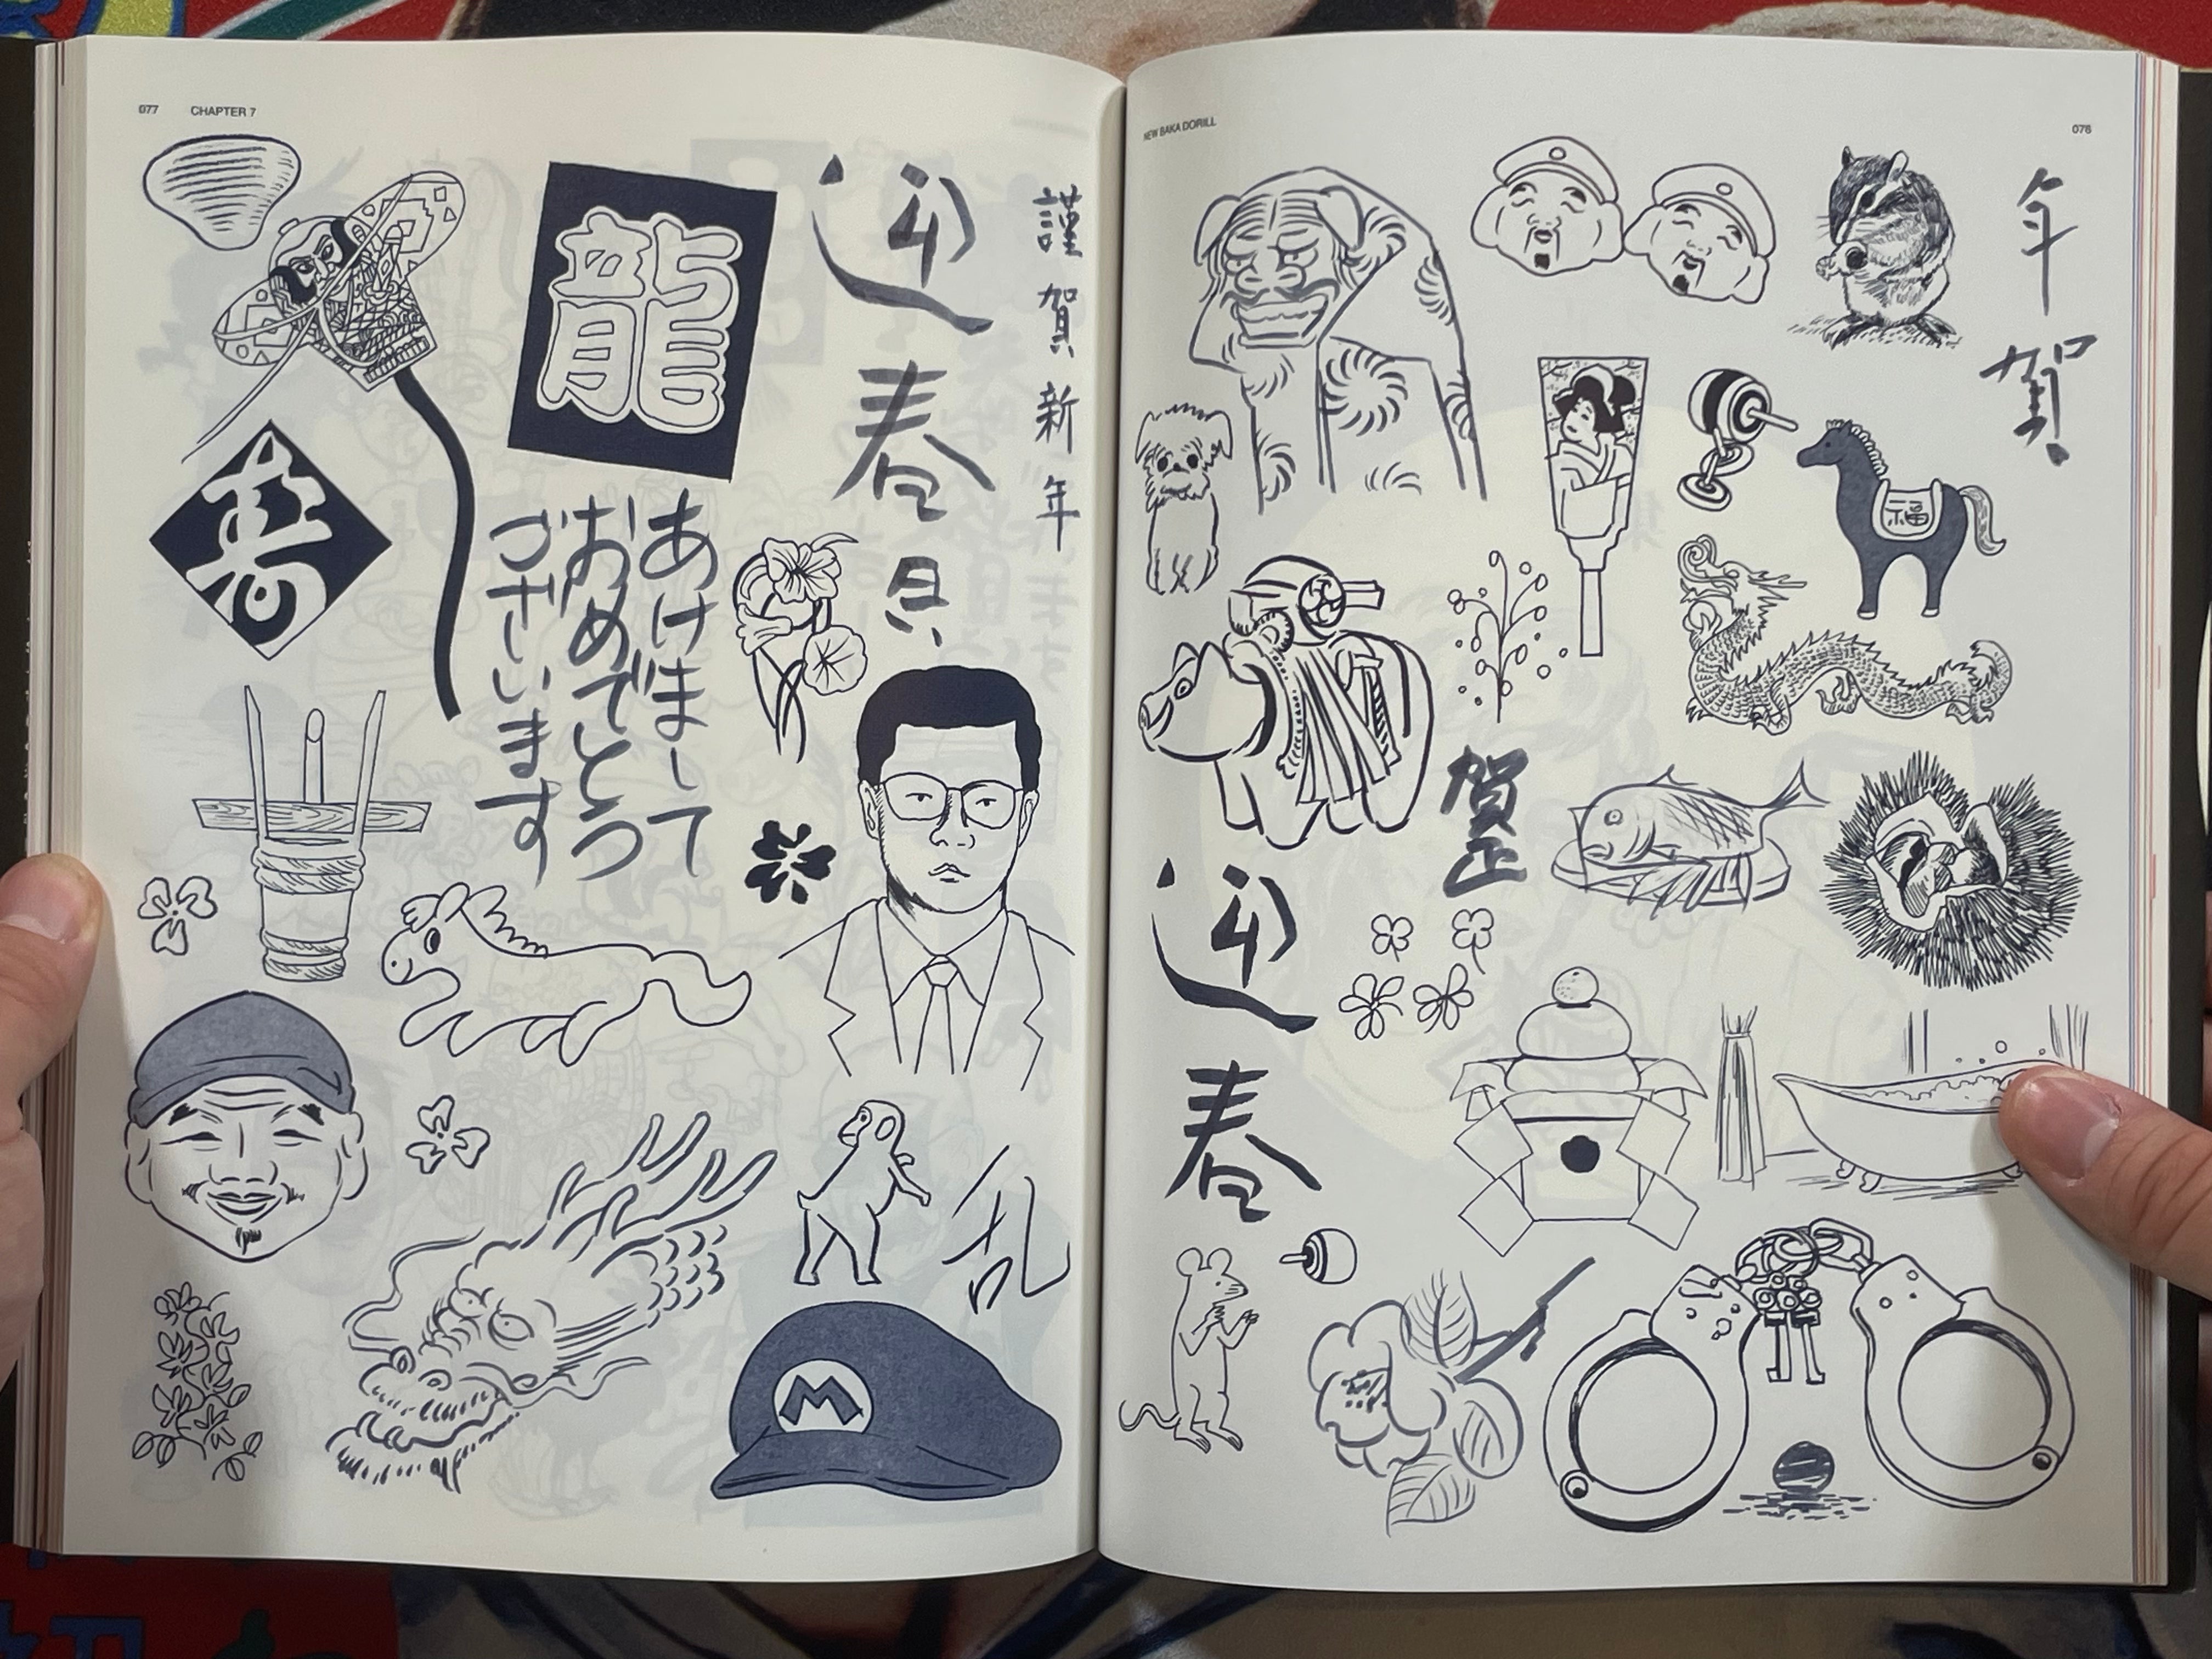 NEW BAKA DORILL
076
年賀
福
賀正
迎春
077 CHAPTER 7
謹賀新年
迎春
龍
あけまして
おめでとう
ございます
M